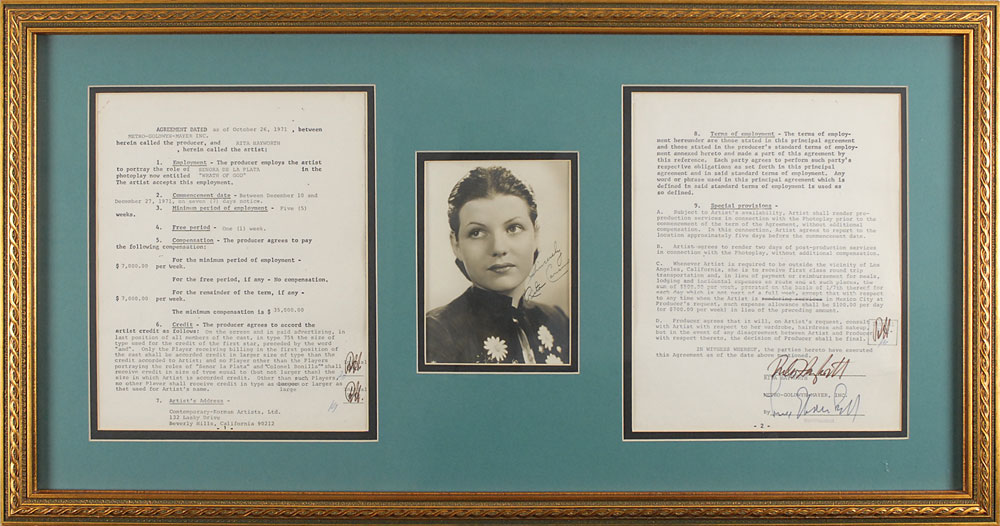 AGREEMENT DATED as of October 26, 1971 , between
METRO-GOLDWYN-MAYER INC.
herein called the producer, and RITA HAYWORTH
, herein called the artist:
1. Employment - The producer employs the artist
to portray the role of SENORA DE LA PLATA in the
photoplay now entitled "WRATH OF GOD"
The artist accepts this employment.
2. Commencement date - Between December 10 and
December 27, 1971, on seven (7) days notice.
3. Minimum period of employment - Five (5)
weeks.
4. Free period - One (1) week.
5. Compensation - The producer agrees to pay
the following compensation:
For the minimum period of employment -
$ 7,000.00 per week.
For the free period, if any - No compensation.
For the remainder of the term, if any -
$ 7,000.00 per week.
The minimum compensation is $ 35,000.00
6. Credit - The producer agrees to accord the
artist credit as follows: On the screen and in paid advertising, in
last position of all members of the cast, in type 75% the size of
type used for the credit of the first star, preceded by the word
"and". Only the Player receiving billing in the first position of
the cast shall be accorded credit in larger size of type than the
credit accorded to Artist; and no Player other than the Players
portraying the roles of "Senor la Plata" and "Colonel Bonilla" shall
receive credit in size of type equal to (but not larger than) the
size in which Artist is accorded credit. Other than such Players,
no other Player shall receive credit in type as or larger as
that used for Artist's name. large
RH
RH
7. Artist's Address -
Contemporary-Korman Artists, Ltd.
132 Lasky Drive
Beverly Hills, California 90212
- 1 -
Sincerely
Rita
8. Terms of employment - The terms of employ-
ment hereunder are those stated in this principal agreement
and those stated in the producer's standard terms of employ-
ment annexed hereto and made a part of this agreement by
this reference. Each party agrees to perform such party's
respective obligations as set forth in this principal
agreement and in said standard terms of employment. Any
word or phrase used in this principal agreement which is
defined in said standard terms of employment is used as
so defined.
9. Special provisions -
A. Subject to Artist's availability, Artist shall render pre-
production services in connection with the Photoplay prior to the
commencement of the term of the Agreement, without additional
compensation. In this connection, Artist agrees to report to the
location approximately five days before the commencement date.
B. Artist agrees to render two days of post-production services
in connection with the Photoplay, without additional compensation.
C. Whenever Artist is required to be outside the vicinity of Los
Angeles, California, she is to receive first class round trip
transportation and, in lieu of payment or reimbursement for meals,
lodging and incidental expenses en route and at such places, the
sum of $500.00 per week, prorated on the basis of 1/7th thereof for
each day which is not part of a full week, except that with respect
to any time when the Artist is rendering services in Mexico City at
Producer's request, such expense allowance shall be $100.00 per day
for $700.00 per week in lieu of the preceding amount.
D. Producer agrees that it will, on Artist's request, consult
with Artist with respect to her wardrobe, hairdress and makeup,
but in the event of any disagreement between Artist and Producer
with respect thereto, the decision of Producer shall be final.
RH
IN WITNESS WHEREOF, the parties hereto have executed
this Agreement as of the date above mentioned.
Rita Hayworth
RITA HAYWORTH
METRO-GOLDWYN-MAYER, INC.
By
- 2 -